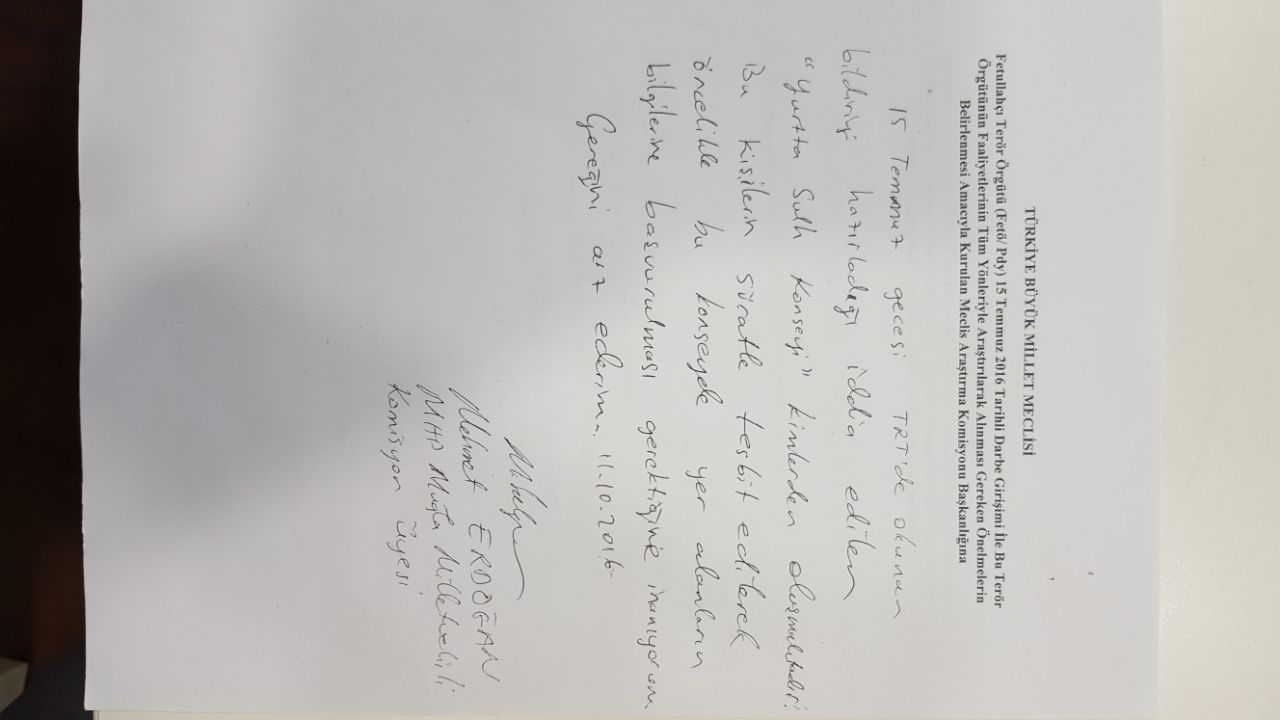 TÜRKİYE BÜYÜK MİLLET MECLİSİ
Fetullahçı Terör Örgütü (Fetö/ Pdy) 15 Temmuz 2016 Tarihli Darbe Girişimi İle Bu Terör
Örgütünün Faaliyetlerinin Tüm Yönleriyle Araştırılarak Alınması Gereken Önelmelerin
Belirlenmesi Amacıyla Kurulan Meclis Araştırma Komisyonu Başkanlığına
15 Temmuz gecesi TRT'de okunan
bildiriyi hazırladığı iddia edilen
"Yurtta Sulh Konseyi" kimlerden oluşmaktadır?
Bu kişilerin süratle tesbit edilerek
öncelikle bu konseyde yer alanların
bilgilerine başvurulması gerektiğine inanıyorum
Gereğini arz ederim. 11.10.2016
Mehmet ERDOĞAN
MHP Muğla Milletvekili
Komisyon Üyesi